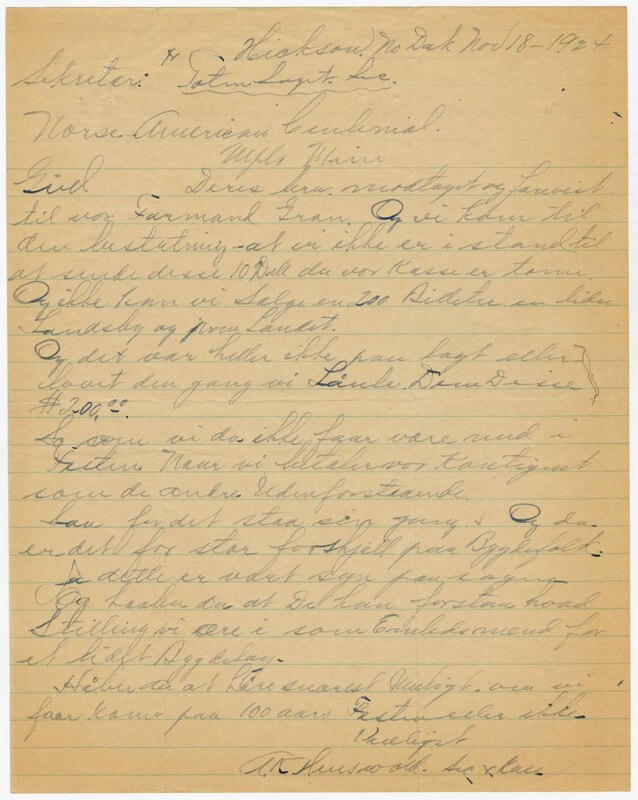 Hickson, No Dak Nov 18-1924
Sekretær:
Norse American Centenial.
Mpls Minn
Gud. Deres brev modtaget og forevist
til vor Formand Gran. Og vi kom til
den beslutning - at vi ikke er i stand til
at sende disse 10 Doll da vor Kasse er tom.
Og ikke kan vi Sælge en 200 Billetter en liden
Landsby og paa Landet.
Og det var heller ikke paa lagt eller
lovet den gang vi Laante Dem Disse
$200.00.
Saa om vi da ikke faar være med i
Festen. Naar vi betaler vor Kontigent
som de andre Udenforstaaende.
kan for det staa sin gang. Og da
er det for stor forskjell paa Bygdefolk.
Ja dette er vart syn paa sagen
Og haaber da at De kan forstaa hvad
Stilling vi ere i som Embedsmend for
et lidet Bygdelag.
Haaber da at høre snarest Muligt. om vi
faar komme paa 100 aars Festen eller ikke.